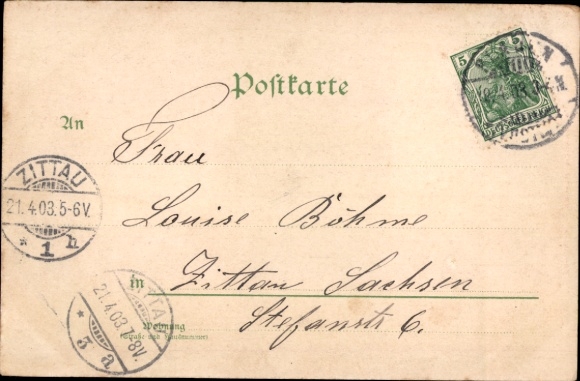 Postkarte
5 5
An
Frau
ZITTAU
21.4.03.5-6V.
* 1 h
Louise Böhme
in Zittau Sachsen
ZITTAU
21.4.03.7-8V.
* 3 a
Stefanstr 6.
Wohnung
(Straße und Hausnummer)